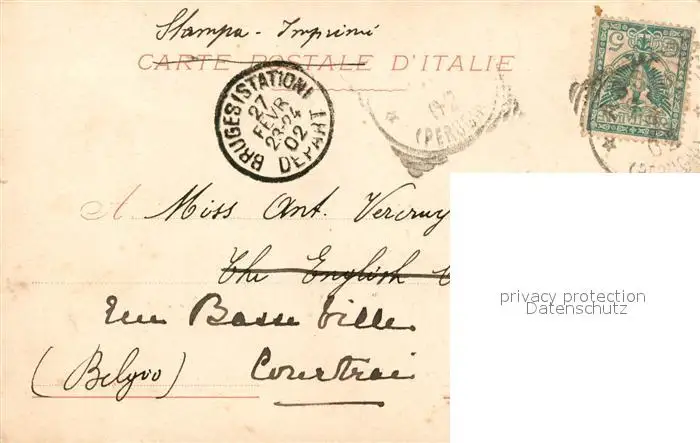 Stampa - Imprimé
CARTE POSTALE D'ITALIE
BRUGES (STATION)
27
FEVR
23-24
02
DEPART
02
(PERUGIA
5
A Miss Ant. Vercruy
The English
Rue Basse Ville
(Belgio) Courtrai
privacy protection
Datenschutz